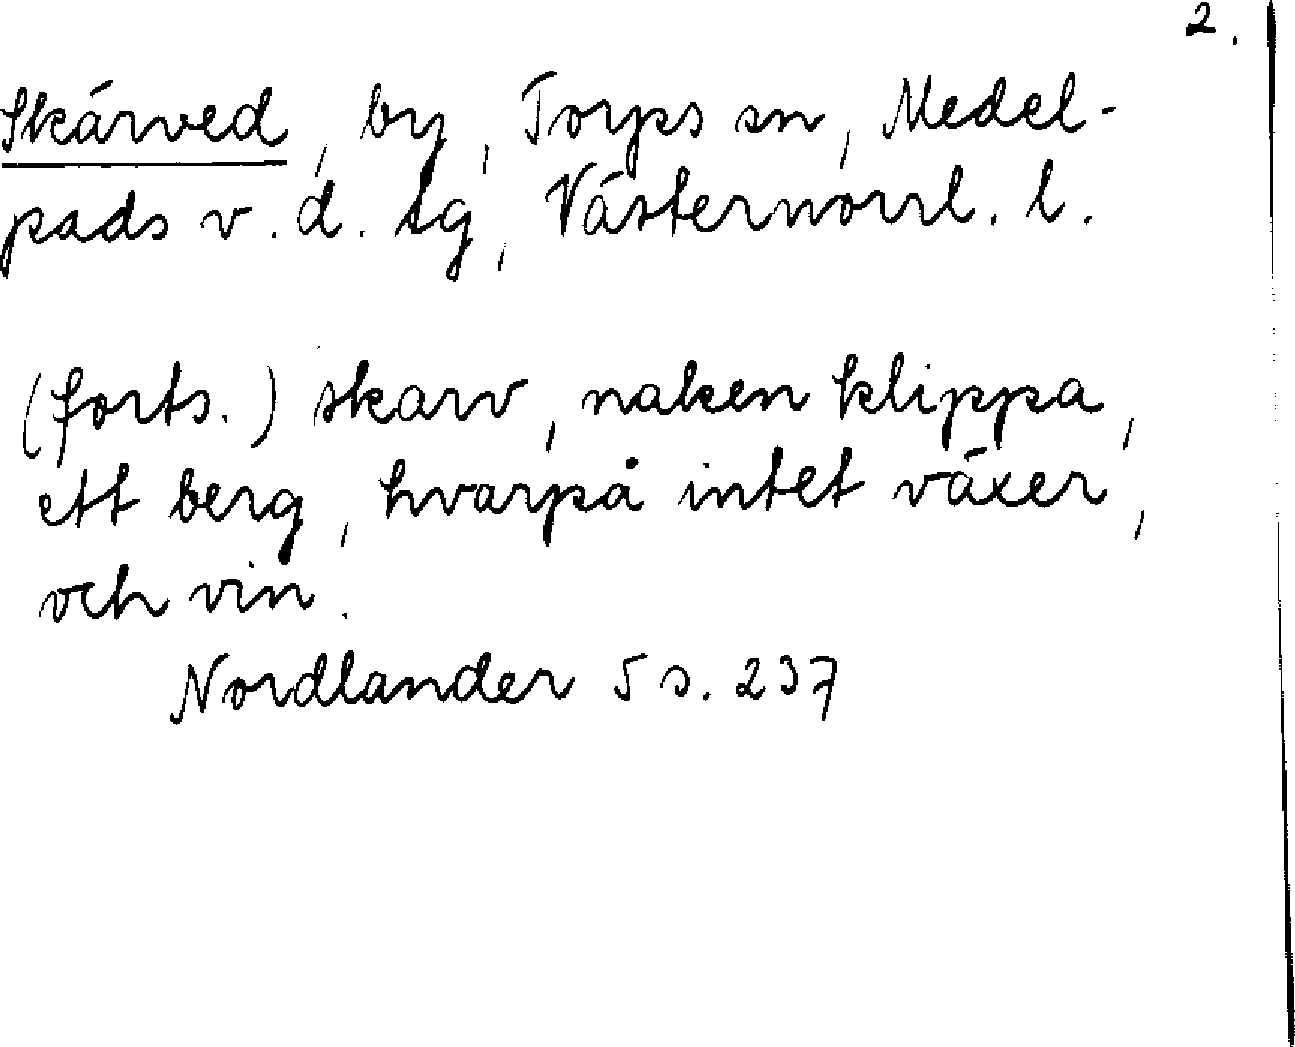 2.
Skärved, by, Torps sn, Medel-
pads v. d. tg, Västernorrl. l.
(forts.) skarv, naken klippa,
ett berg, hvarpå intet växer,
och vin.
Nordlander 5 s. 237